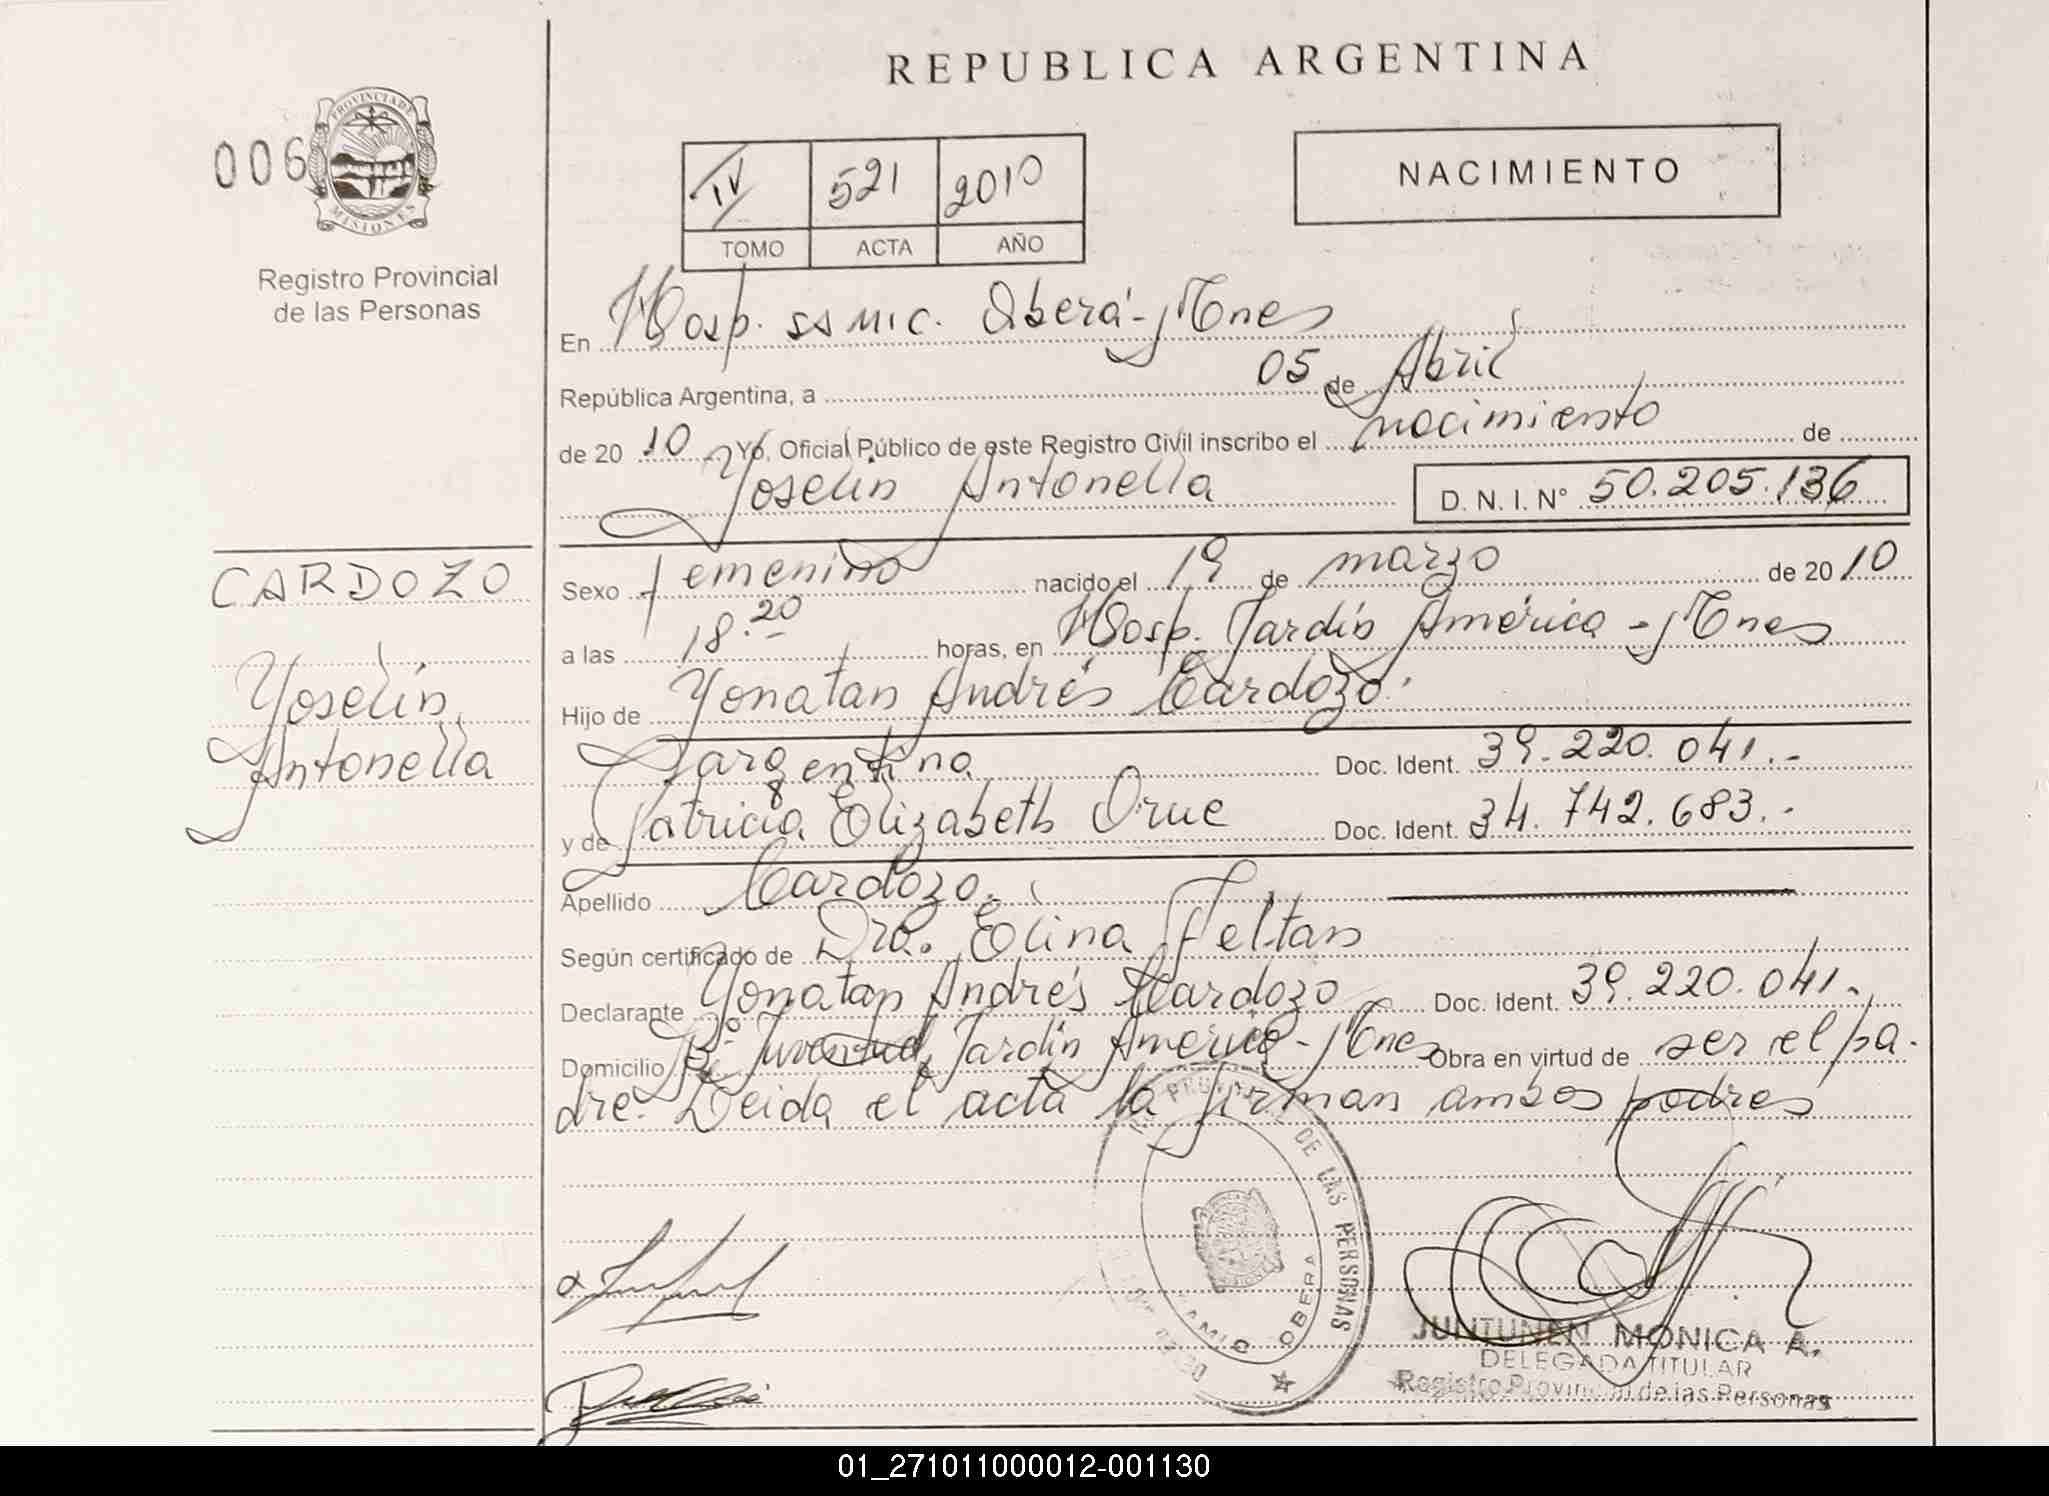 REPUBLICA ARGENTINA
006
PROVINCIA DE
MISIONES
Registro Provincial
de las Personas
IV 521 2010
TOMO ACTA AÑO
NACIMIENTO
En Hosp. SSMIC. Oberá - Mnes
República Argentina, a 05 de Abril
de 20 10 Yo, Oficial Público de este Registro Civil inscribo el nacimiento de
Yoselin Antonella D. N. I. N° 50.205.136
CARDOZO
Yoselin
Antonella
Sexo femenino nacido el 19 de marzo de 20 10
a las 18.20 horas, en Hosp. Jardín América - Mnes
Hijo de Yonatan Andrés Cardozo.
Argentina Doc. Ident. 39.220.041.-
y de Patricia Elizabeth Orue Doc. Ident. 34.742.683.-
Apellido Cardozo.
Según certificado de Dra. Elina Feltan
Declarante Yonatan Andrés Cardozo Doc. Ident. 39.220.041.
Domicilio B° Juventud, Jardín América - Mnes Obra en virtud de ser el pa-
dre. Leida el acta la firman ambos padres
PROVINCIAL DE LAS PERSONAS
OBERA
JUNTUNEN MONICA A.
DELEGADA TITULAR
Registro Provincial de las Personas
01_271011000012-001130